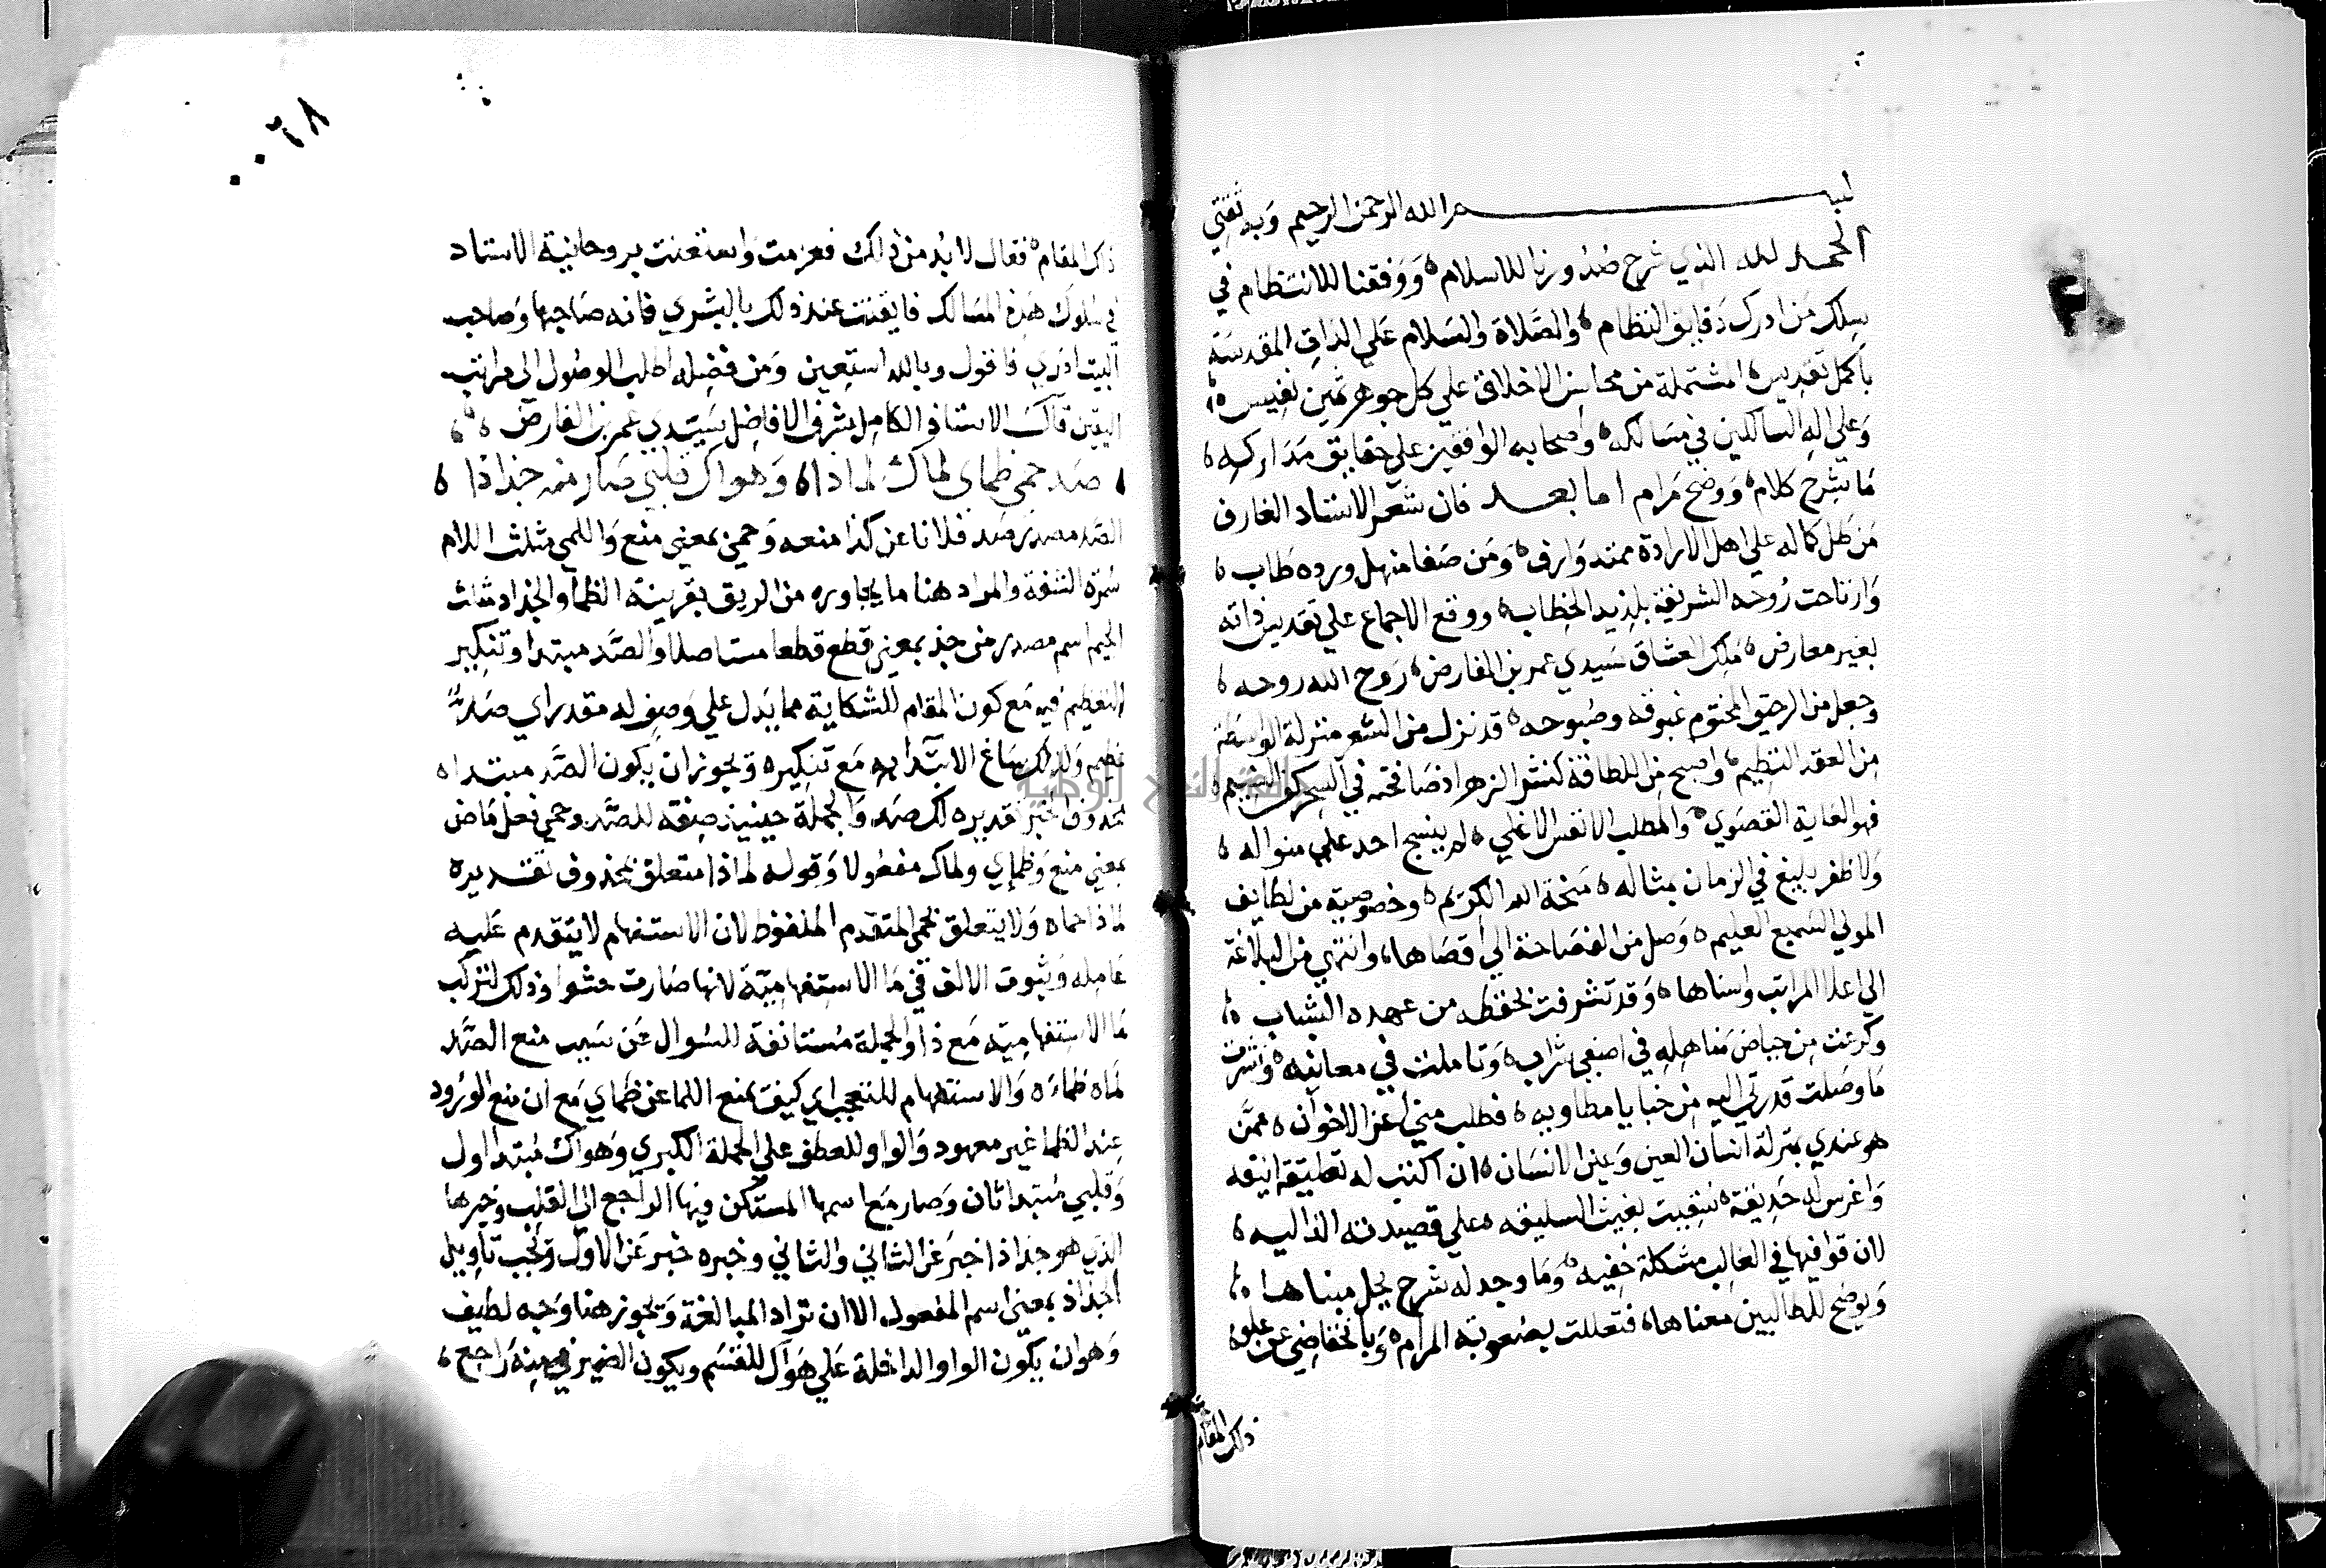 بسم الله الرحمن الرحيم وبه ثقتي
الحمد لله الذي شرح صدورنا للاسلام ووفقنا للانتظام في
سلك من ادرك دقايق النظام والصلاة والسلام علي الذات المقدسة
باكمل تقديس المشتملة من محاسن الاخلاق علي كل جوهر ثمين نفيس
وعلي اله السالكين في مسالكه واصحابه الواقفين علي حقايق مداركه
ما شرح كلام ووضح مرام اما بعد فان شعر الاستاد العارف
من ظل كماله علي اهل الارادة ممتد وارف ومن صفا منهل ورده طاب
وارتاحت روحه الشريفة بلذيذ الخطاب ووقع الاجماع علي تقديس ذاته
بغير معارض ملك العشاق سيدي عمر بن الفارض روح الله روحه
وجعل من الرحيق المختوم غبوقه وصبوحه قد نزل من الشعر منزلة الواسطة
من العقد النظيم واصبح من اللطافة كنشر الزهر اذ صافحته في السحر كف النسيم
فهو الغاية القصوي والمطلب الانفس الاغلي لم ينسج احد علي منواله
ولا ظفر بليغ في الزمان بمثاله منحة الله الكريم وخصوصية من لطايف
المولي السميع العليم وصل من الفصاحة الي اقصاها وانتهي من البلاغة
الي اعلا المراتب واسناها وقد تشرفت بحفظه من عهده الشباب
وكرعت من حياض مناهله في اصفي شراب وتاملت في معانيه واشرفت
ما وصلت قدرتي اليه من خبايا مطاويه فطلب مني اعز الاخوان ممن
هو عندي بمنزلة انسان العين وعين الانسان ان اكتب له تعليقة انيقه
واغرس له حديقة سقيت بغيث السليقه علي قصيدته الذاليه
لان قوافيها في الغالب مشكلة خفيه وما وجد له شرح يحل مبناها
ويوضح للطالبين معناها فتعللت بصعوبة المرام وبانخفاضي عن علو
ذلك المقام
٠٠٢٨
ذلك المقام فقال لا بد من ذلك فعزمت واستعنت بروحانية الاستاد
في سلوك هذه المسالك فايقنت عند ذلك بالبشري فانه صاحبها وصاحب
البيت ادري فاقول وبالله استعين ومن فضله اطلب الوصول الي مراتب
اليقين قال الاستاذ الكامل شرف الافاضل سيدي عمر بن الفارض
صد حمي ظماي لماك لماذا وهواك قلبي صار منه جذاذا
الصد مصدر صد فلانا عن كذا منعه وحمي بمعني منع واللمي مثلث اللام
سمرة الشفة والمراد هنا ما يجاوره من الريق بقرينة الظما والجذاذ مثلث
الجيم اسم مصدر من جذ بمعني قطع قطعا مستاصلا والصد مبتدا وتنكير
التعظيم فيه مع كون المقام للشكاية مما يدل علي وصف له مقدر اي صد
عظيم ولذلك ساغ الابتدا به مع تنكيره ويجوز ان يكون الصد مبتدا
محذوف الخبر تقديره لك صد والجملة حينيذ صفة للصد وحمي فعل ماض
بمعني منع وظماي ولماك مفعولا وقوله لماذا متعلق بمحذوف تقديره
لماذا حماه ولا يتعلق بحمي المتقدم الملفوظ لان الاستفهام لا يتقدم عليه
عامله وثبوت الالف في ما الاستفهامية لانها صارت حشوا وذلك لتركب
ما الاستفهامية مع ذا والجملة مستانفة للسوال عن سبب منع الصد
لماه ظماءه والاستفهام للتعجب اي كيف يمنع اللما عن ظماي مع ان منع الورود
عند الظما غير معهود والواو للعطف علي الجملة الكبري وهواك مبتدا اول
وقلبي مبتدا ثان وصار مع اسمها المستكن فيها الراجع الي القلب وخبرها
الذي هو جذاذا خبر عن الثاني والثاني وخبره خبر عن الاول ويجب تاويل
الجذاذ بمعني اسم المفعول الا ان تراد المبالغة ويجوز هنا وجه لطيف
وهوان يكون الواو الداخلة علي هواك للقسم ويكون الضمير في منه راجع